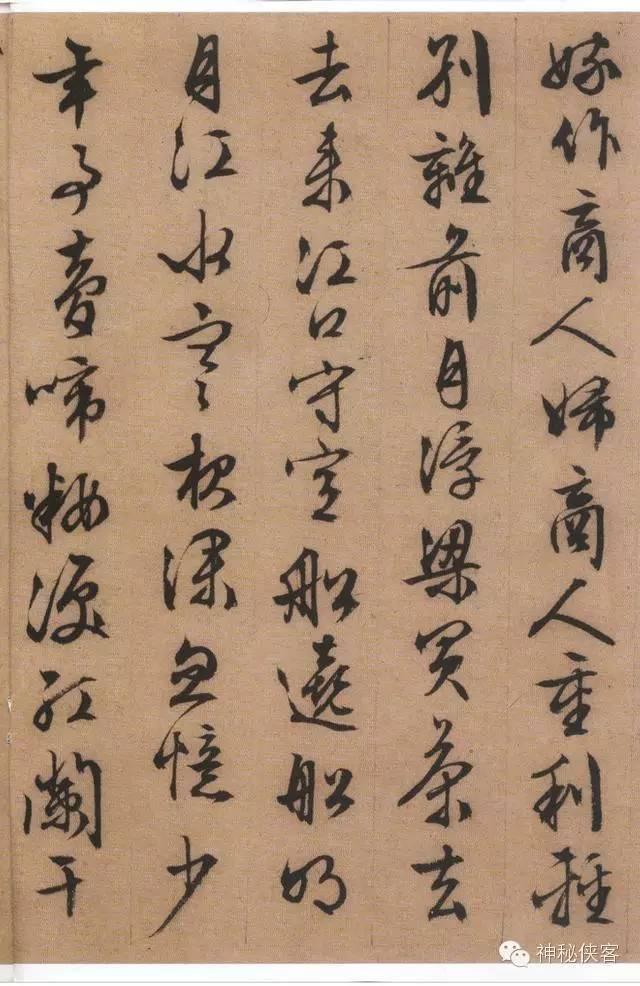 嫁作商人婦商人重利輕
別離前月浮梁買茶去
去来江口守空船遶船明
月江水寒夜深忽憶少
年事夢啼粧淚紅闌干
神秘侠客